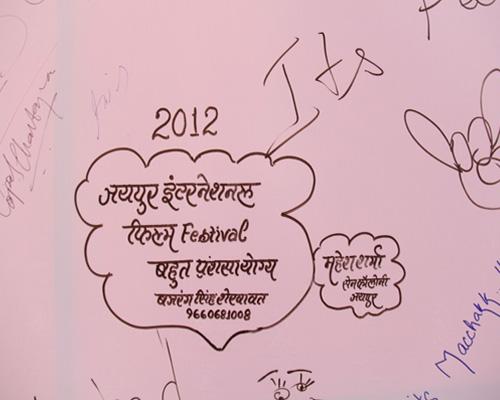 Its
2012
जयपुर इंटरनेशनल
फिल्म Festival
बहुत प्रंशसायोग्य
बजरंग सिंह शेखावत
9660681008
महेश शर्मा
सेन कॉलोनी
जयपुर
Macchakk